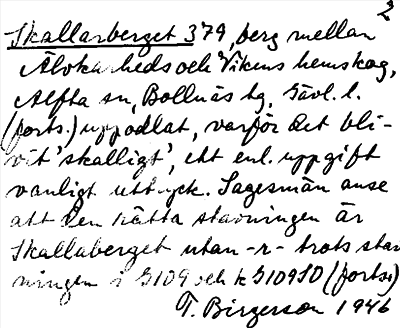 2
Skallarberget 379, berg mellan
Älvkarheds och Vikens hemskog,
Alfta sn, Bollnäs tg, Gävl. l.
(forts.) uppodlat, varför det bli-
vit 'skalligt', ett enl. uppgift
vanligt uttryck. Sagesmän anse
att den rätta stavningen är
Skallaberget utan -r- trots stav
ningen i G109 och k G109SO (forts.)
T. Birgerson 1946